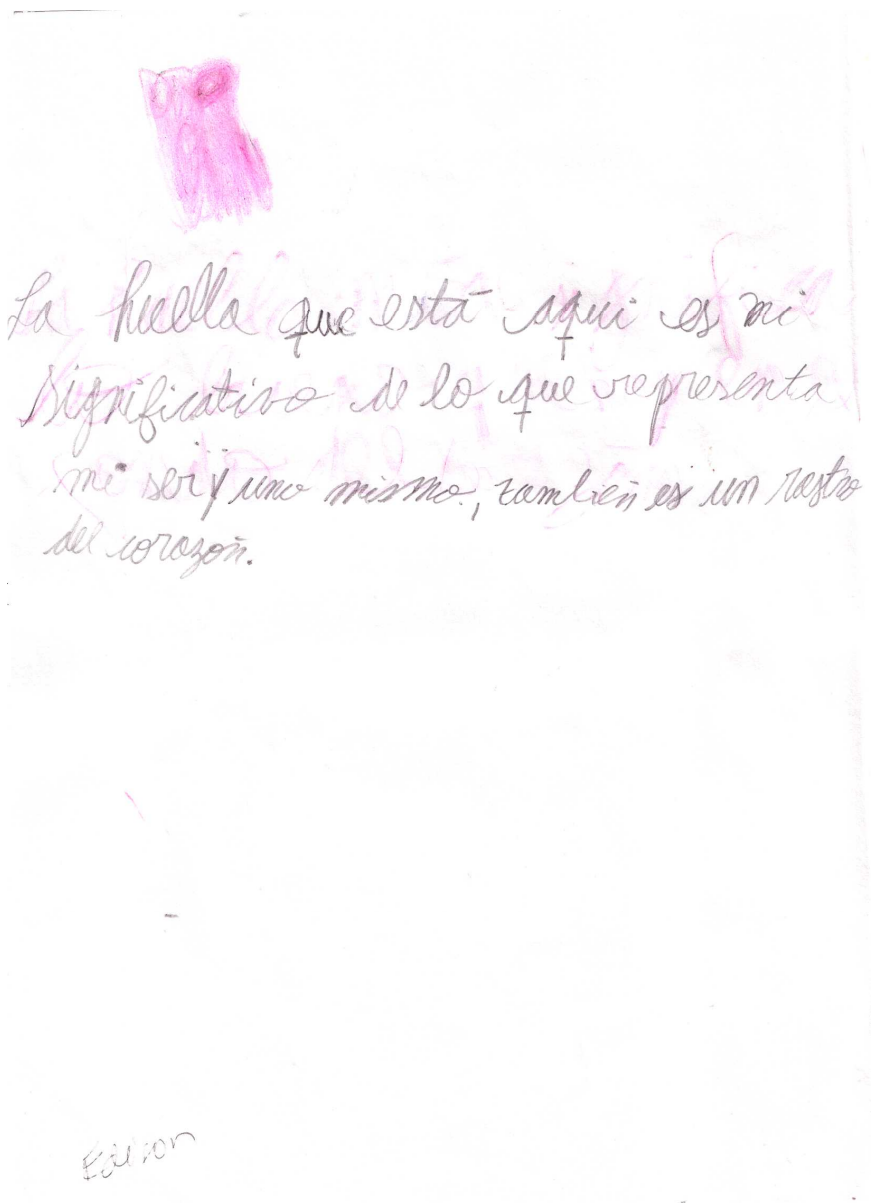 La huella que está aqui es mi
significativo de lo que representa
mi ser y uno mismo, también es un rastro
del corazón.
Edison